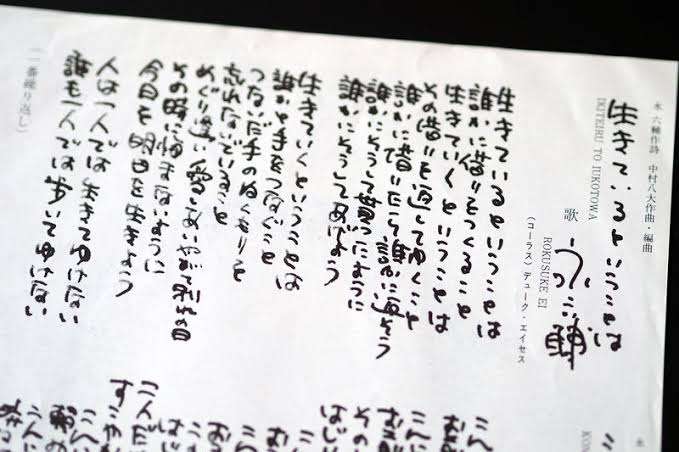 永 六輔作詩 中村八大作曲・編曲
生きているということは
IKITEIRU TO IUKOTOWA
歌 永六輔
ROKUSUKE EI
（コーラス）デューク・エイセス
生きているということは
誰かに借りをつくること
生きていくということは
その借りを返してゆくこと
誰かに借りたら誰かに返そう
誰かにそうして貰ったように
誰かにそうしてあげよう
生きていくということは
誰かと手をつなぐこと
つないだ手のぬくもりを
忘れないでいること
めぐり逢い愛しあいやがて別れの日
その時に悔まないように
今日を明日を生きよう
人は一人では生きてゆけない
誰も一人では歩いてゆけない
（一番繰り返し）
永
KON